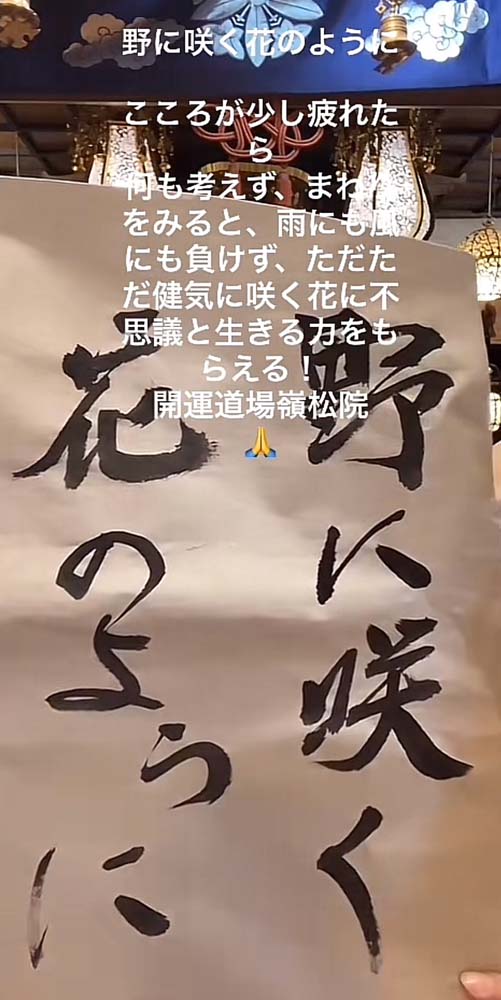 野に咲く花のように
こころが少し疲れた
ら
何も考えず、まわり
をみると、雨にも風
にも負けず、ただた
だ健気に咲く花に不
思議と生きる力をも
らえる！
開運道場嶺松院
🙏
野に咲く
花のように